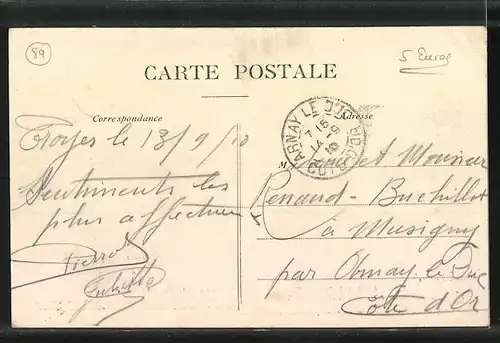 89
5 Euros
CARTE POSTALE
Correspondance
Adresse
ARNAY LE DUC
7 15
14 -9
10
COTE D'OR
Troyes le 13/9/10
Sentiments les
plus affectueux
Pierre
M et Monsieur
Renaud-Buchillot
à Musigny
par Arnay le Duc
Côte d'Or